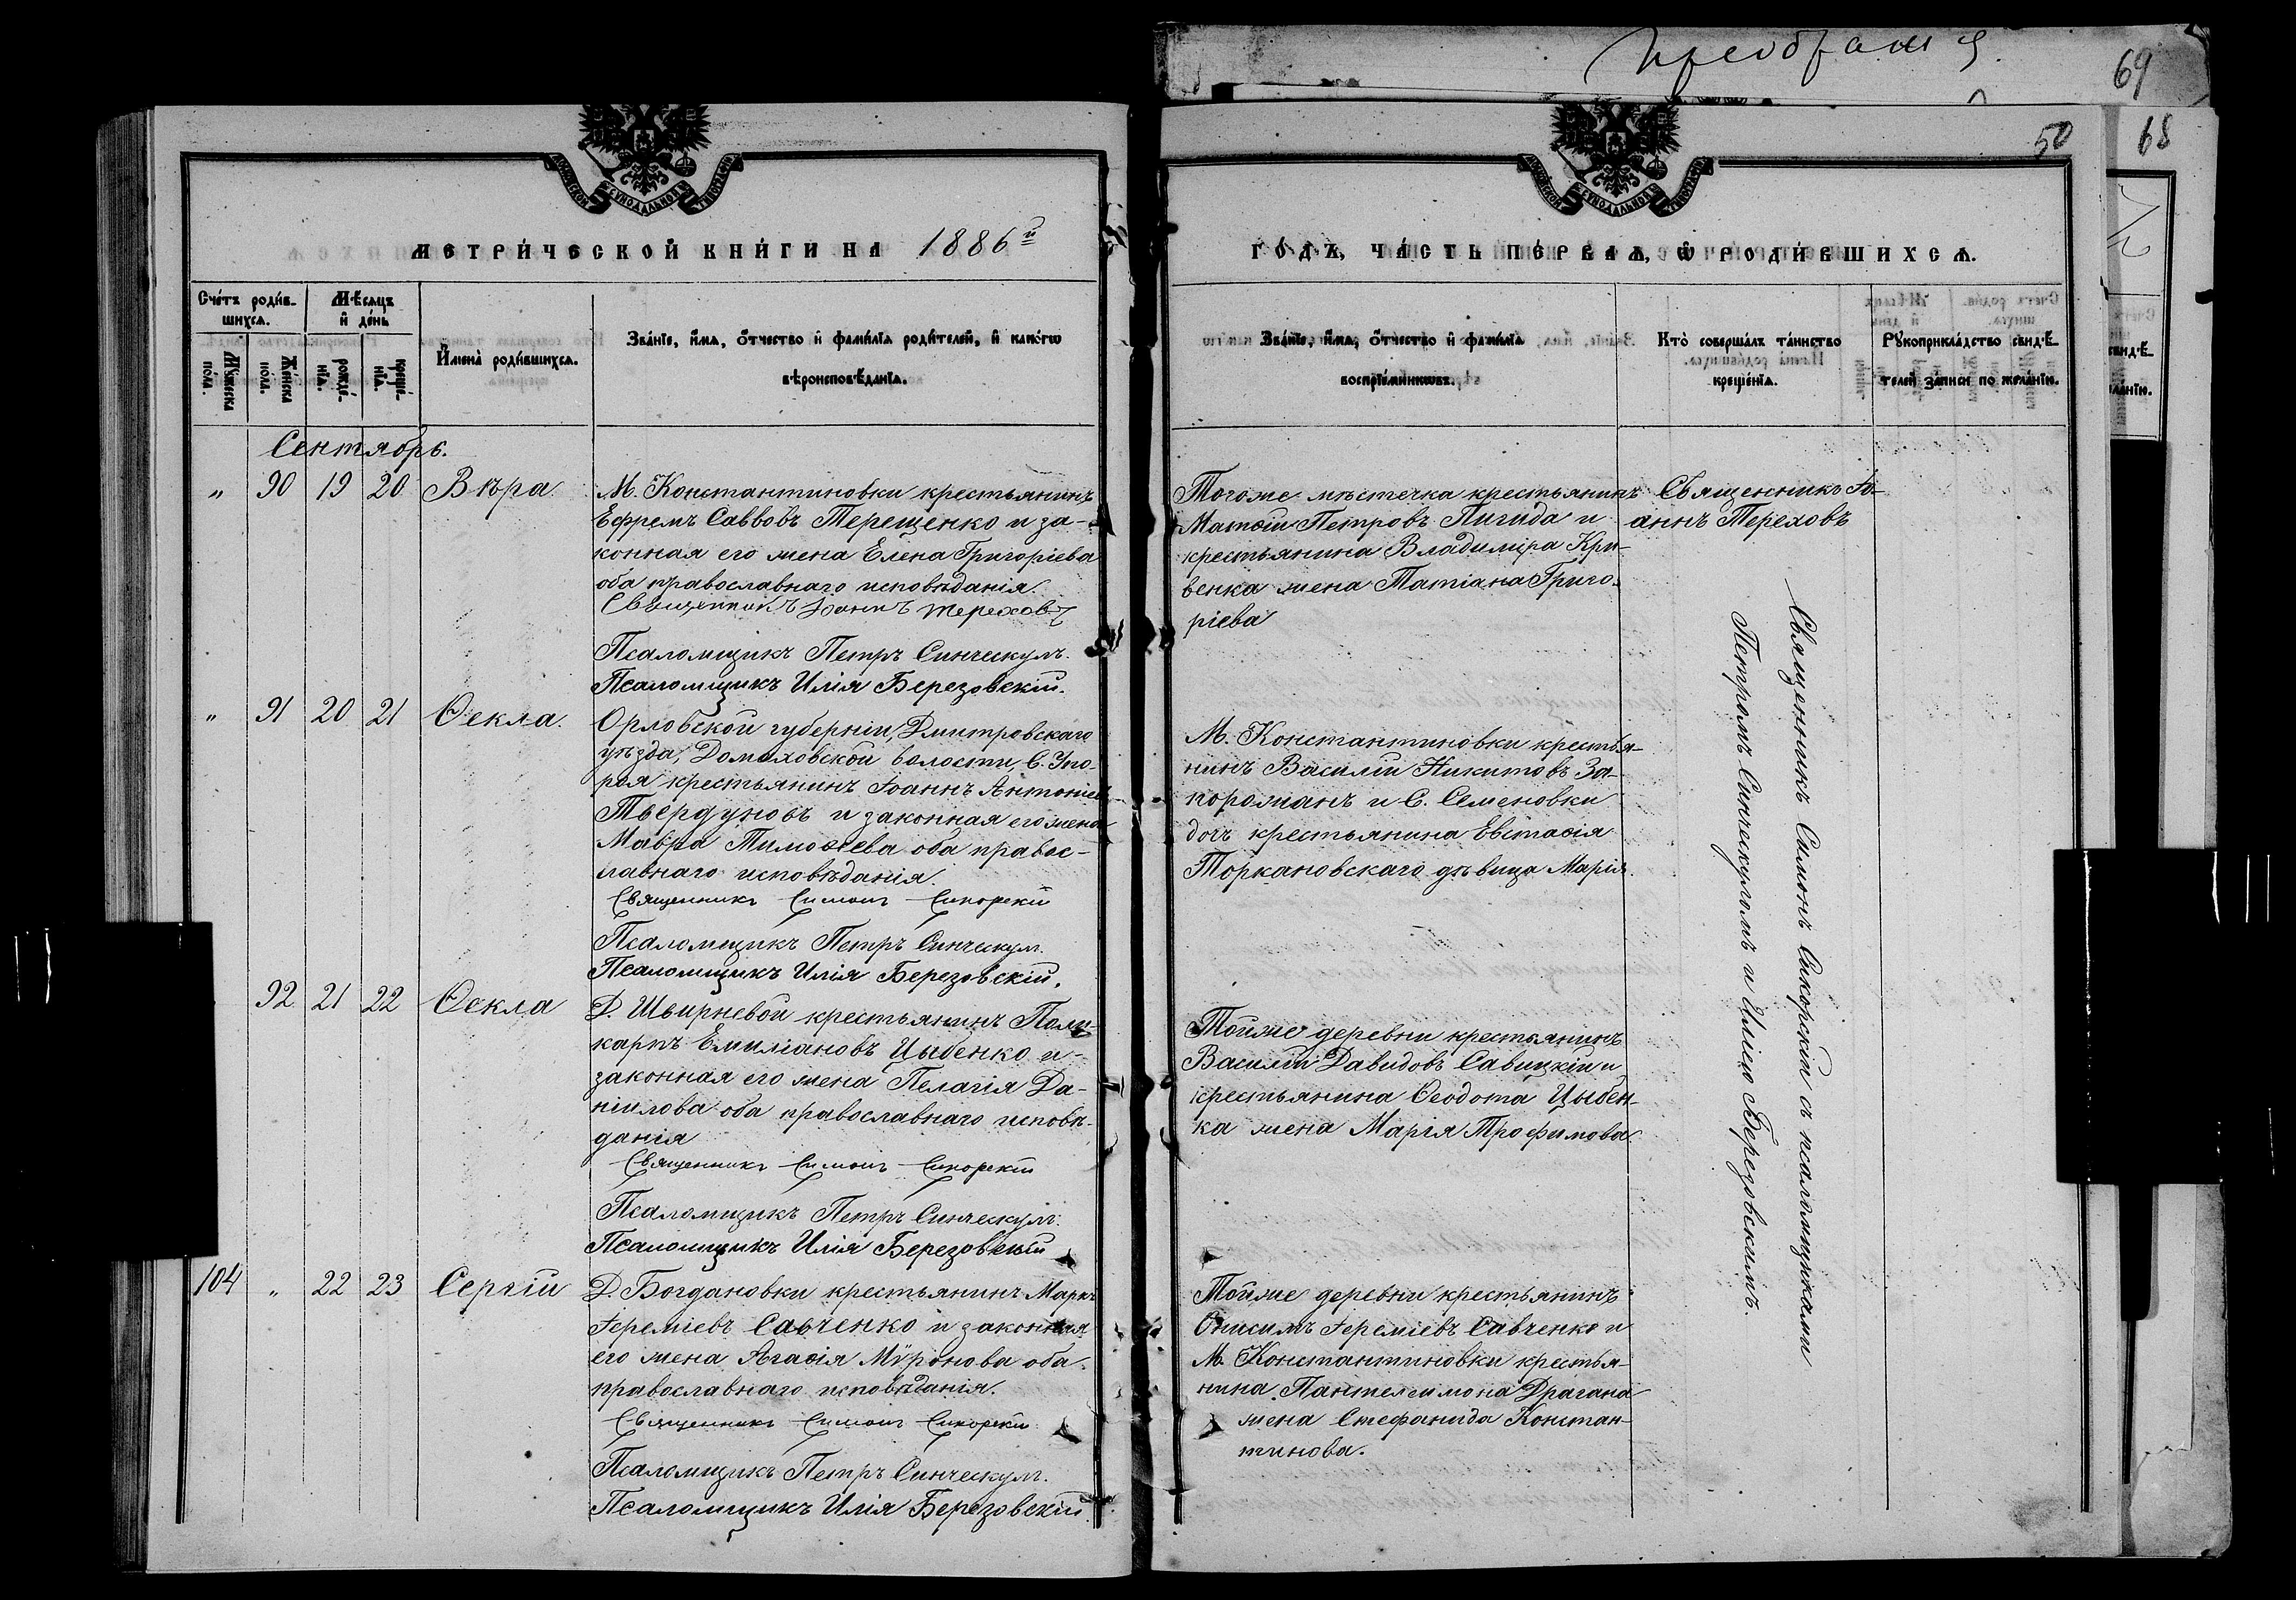 преображ
69
68
50
МОСКОВСКОЙ СѴНОДАЛЬНОЙ ТИПОГРАФІИ
МОСКОВСКОЙ СѴНОДАЛЬНОЙ ТИПОГРАФІИ
МЕТРИ́ЧЕСКОЙ КНИ́ГИ НА 1886й
ГО́ДЪ, ЧА́СТЬ ПЕ́РВАѦ, Ѡ РОДИ́ВШИХСѦ.
Сче́тъ роди́в-
шихсѧ.
Мꙋ́жеска по́ла.
Же́нска по́ла.
Мѣ́сѧцъ
и҆ де́нь
рожде́-
нїѧ.
креще́-
нїѧ.
И҆мена̀ роди́вшихсѧ.
Зва́нїе, и҆́мѧ, ѻ҆́тчество и҆ фами́лїѧ роди́телей, и҆ како́гѡ
вѣроисповѣ́данїѧ.
Зва́нїе, и҆́мѧ, ѻ҆́тчество и҆ фами́лїѧ
воспрїе́мникѡвъ.
Кто̀ соверша́лъ та́инство
креще́нїѧ.
Рꙋкоприкла́дство свидѣ́-
телей за́писи по жела́нїю.
Сентябрь.
„ 90 19 20 Вѣра.
М. Константиновки крестьянинъ
Ефремъ Саввовъ Терещенко и за-
конная его жена Елена Григоріева
оба православнаго исповѣданія.
Священникъ Іоаннъ Тереховъ
Псаломщикъ Петръ Синческулъ.
Псаломщикъ Илія Березовскій.
Тогоже мѣстечка крестьянинъ
Матѳій Петровъ Пигида и
крестьянина Владиміра Кри-
венка жена Татіана Григо-
ріева
Священникъ Іо-
аннъ Тереховъ
„ 91 20 21 Ѳекла.
Орловской губерніи, Дмитровскаго
уѣзда, Домаховской волости, С. Упо-
роя крестьянинъ Іоаннъ Антоніевъ
Твердуновъ и законная его жена
Мавра Тимоѳеева оба правос-
лавнаго исповѣданія.
Священникъ Симонъ Сикорскій
Псаломщикъ Петръ Синческулъ.
Псаломщикъ Илія Березовскій.
М. Константиновки крестья-
нинъ Василій Никитовъ За-
порожанъ и С. Семеновки
дочь крестьянина Евстаѳія
Торкановскаго дѣвица Марія.
92 21 22 Ѳекла
Д. Шворневой крестьянинъ Поли-
карпъ Емиліановъ Цыбенко и
законная его жена Пелагія Да-
ніилова оба православнаго исповѣ-
данія
Священникъ Симонъ Сикорскій
Псаломщикъ Петръ Синческулъ.
Псаломщикъ Илія Березовскій
Тойже деревни крестьянинъ
Василій Давидовъ Савицкій и
крестьянина Ѳеодота Цыбен-
ка жена Марія Трофимова
104 „ 22 23 Сергій
Д. Богдановки крестьянинъ Маркъ
Іереміевъ Савченко и законная
его жена Агаѳія Мѵронова оба
православнаго исповѣданія.
Священникъ Симонъ Сикорскій
Псаломщикъ Петръ Синческулъ.
Псаломщикъ Илія Березовскій.
Тойже деревни крестьянинъ
Онисимъ Іереміевъ Савченко и
М. Константиновки крестья-
нина Пантелеимона Драгана
жена Стефанида Констан-
тинова.
Священникъ Симонъ Сикорскій съ псаломщиками
Петромъ Синческуломъ и Иліею Березовскимъ.